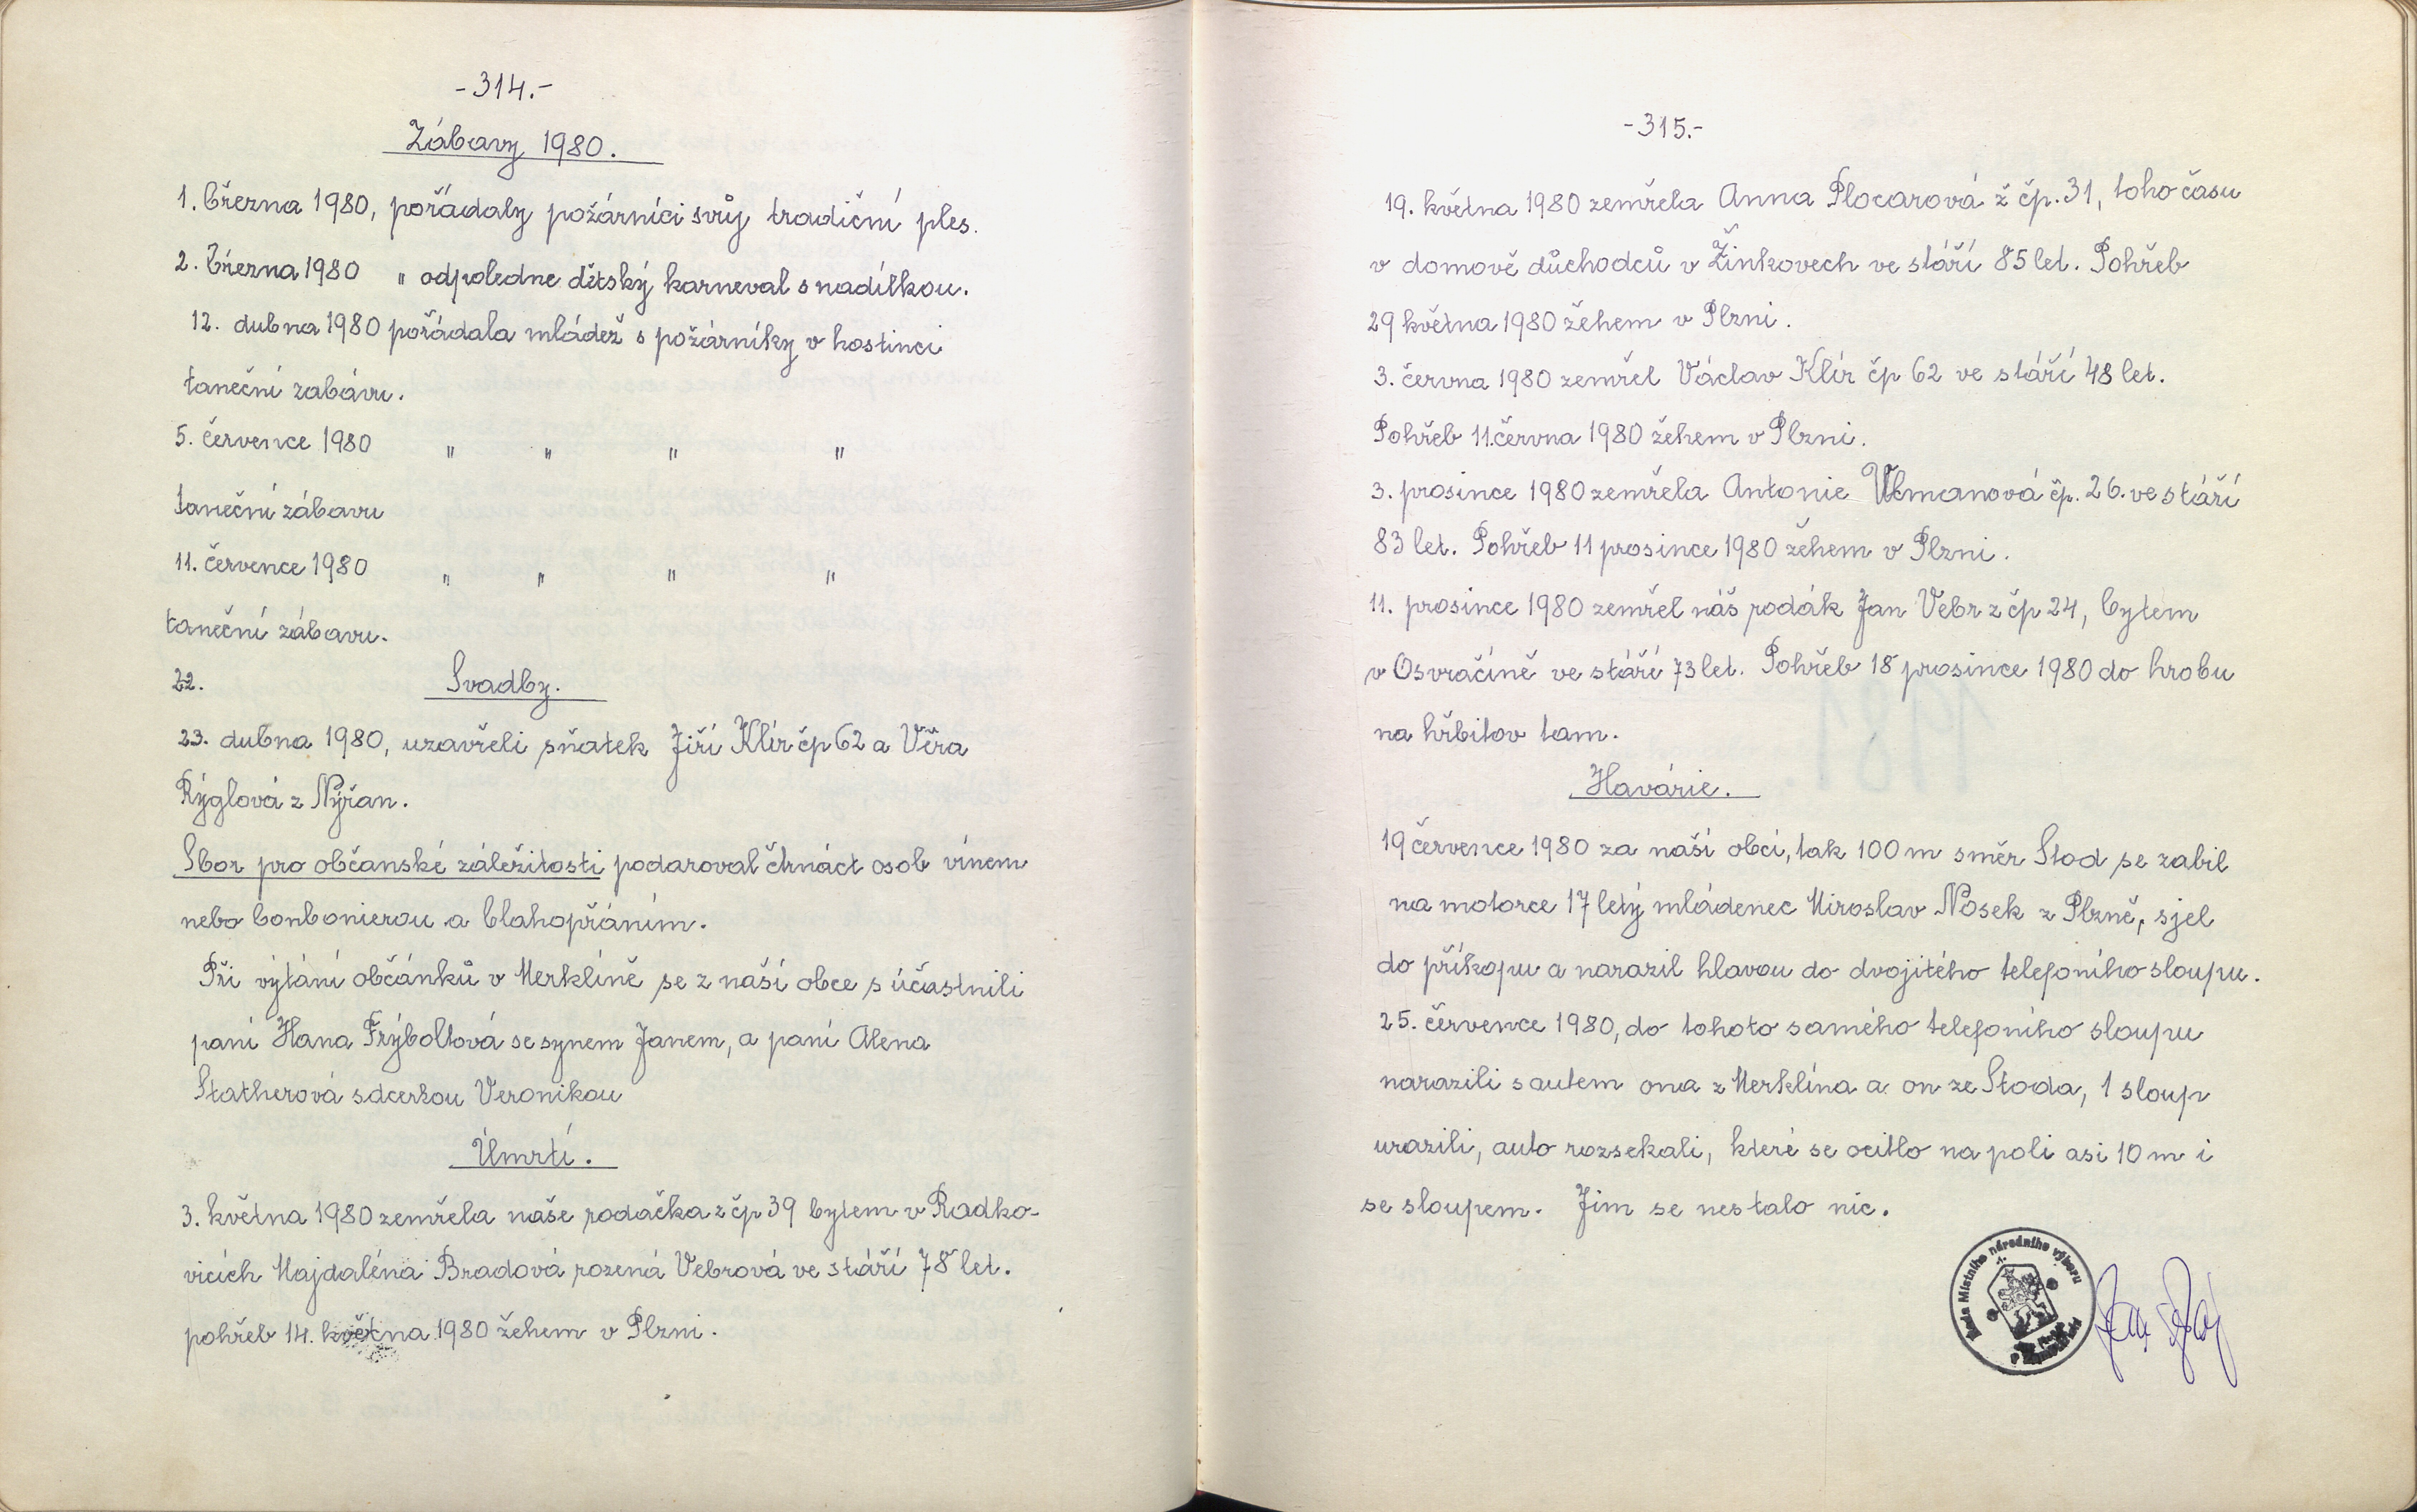 -314.-
Zábavy 1980.
1. března 1980, pořádaly požárníci svůj tradiční ples.
2. března 1980 " odpoledne dětský karneval s nadílkou.
12. dubna 1980 pořádala mládež s požárníky v hostinci
taneční zabávu.
5. července 1980 " " " "
taneční zábavu
11. července 1980 " " " "
taneční zábavu.
22. Svadby.
23. dubna 1980, uzavřeli sňatek Jiří Klír čp 62 a Věra
Rýglová z Nýřan.
Sbor pro občanské záležitosti podaroval čtrnáct osob vínem
nebo bonbonierou a blahopřáním.
Při výtání občánků v Merklíně se z naší obce súčastnili
paní Hana Frýboltová se synem Janem, a paní Alena
Statherová s dcerkou Veronikou
Úmrtí.
3. května 1980 zemřela naše rodačka z čp 39 bytem v Radko-
vicích Majdaléna Bradová rozená Vebrová ve stáří 78 let.
pohřeb 14. května 1980 žehem v Plzni.
-315.-
19. května 1980 zemřela Anna Plocarová ž čp. 31, toho času
v domově důchodců v Žinkovech ve stáří 85 let. Pohřeb
29 května 1980 žehem v Plzni.
3. června 1980 zemřel Václav Klír čp 62 ve stáří 48 let.
Pohřeb 11. června 1980 žehem v Plzni.
3. prosince 1980 zemřela Antonie čp. 26. ve stáří
83 let. Pohřeb 11 prosince 1980 žehem v Plzni.
11. prosince 1980 zemřel náš rodák Jan Vebr z čp 24, bytem
v Osvračíně ve stáří 73 let. Pohřeb 18 prosince 1980 do hrobu
na hřbitov tam.
Havárie.
19 července 1980 za naší obcí, tak 100 m směr Stod se zabil
na motorce 17 letý mládenec Miroslav Nosek z Plzně, sjel
do příkopu a narazil hlavou do dvojitého telefoního sloupu.
25. července 1980, do tohoto samého telefoního sloupu
narazili s autem ona z Merklína a on ze Stoda, 1 sloup
urazili, auto rozsekali, které se ocitlo na poli asi 10 m i
se sloupem. Jim se nestalo nic.
Rada Místního národního výboru